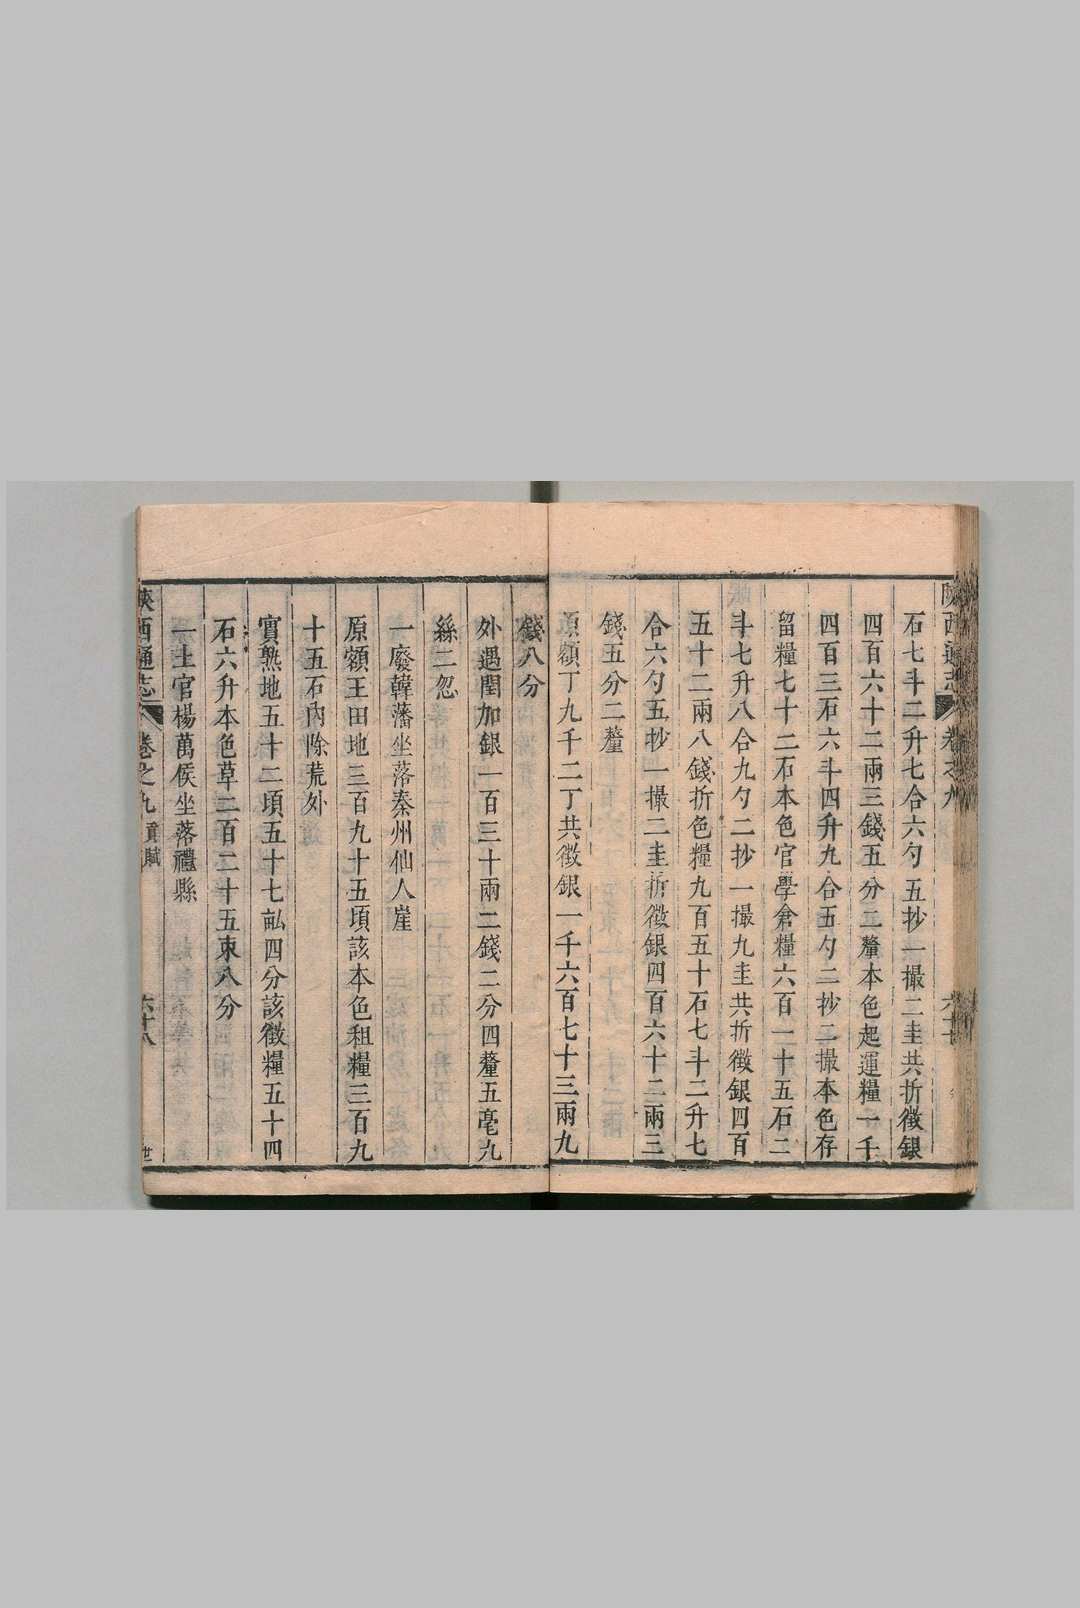 石七斗二升七合六勺五抄一撮二圭共折徵銀
四百六十二兩三錢五分二釐本色起運糧一千
四百三石六斗四升九合五勺二抄二撮本色存
留糧七十二石本色官學倉糧六百一十五石二
斗七升八合九勺二抄一撮九圭共折徵銀四百
五十二兩八錢折色糧九百五十石七斗二升七
合六勺五抄一撮二圭折徵銀四百六十二兩三
錢五分二釐
原額丁九千二丁共徵銀一千六百七十三兩九
錢八分
外遇閏加銀一百三十兩二錢二分四釐五毫九
絲二忽
一廢韓藩坐落秦州仙人崖
原額王田地三百九十五頃該本色租糧三百九
十五石內除荒外
實熟地五十二頃五十七畝四分該徵糧五十四
石六升本色草二百二十五束八分
一土官楊萬侯坐落禮縣
陝西通志
卷之九 貢賦
六十八